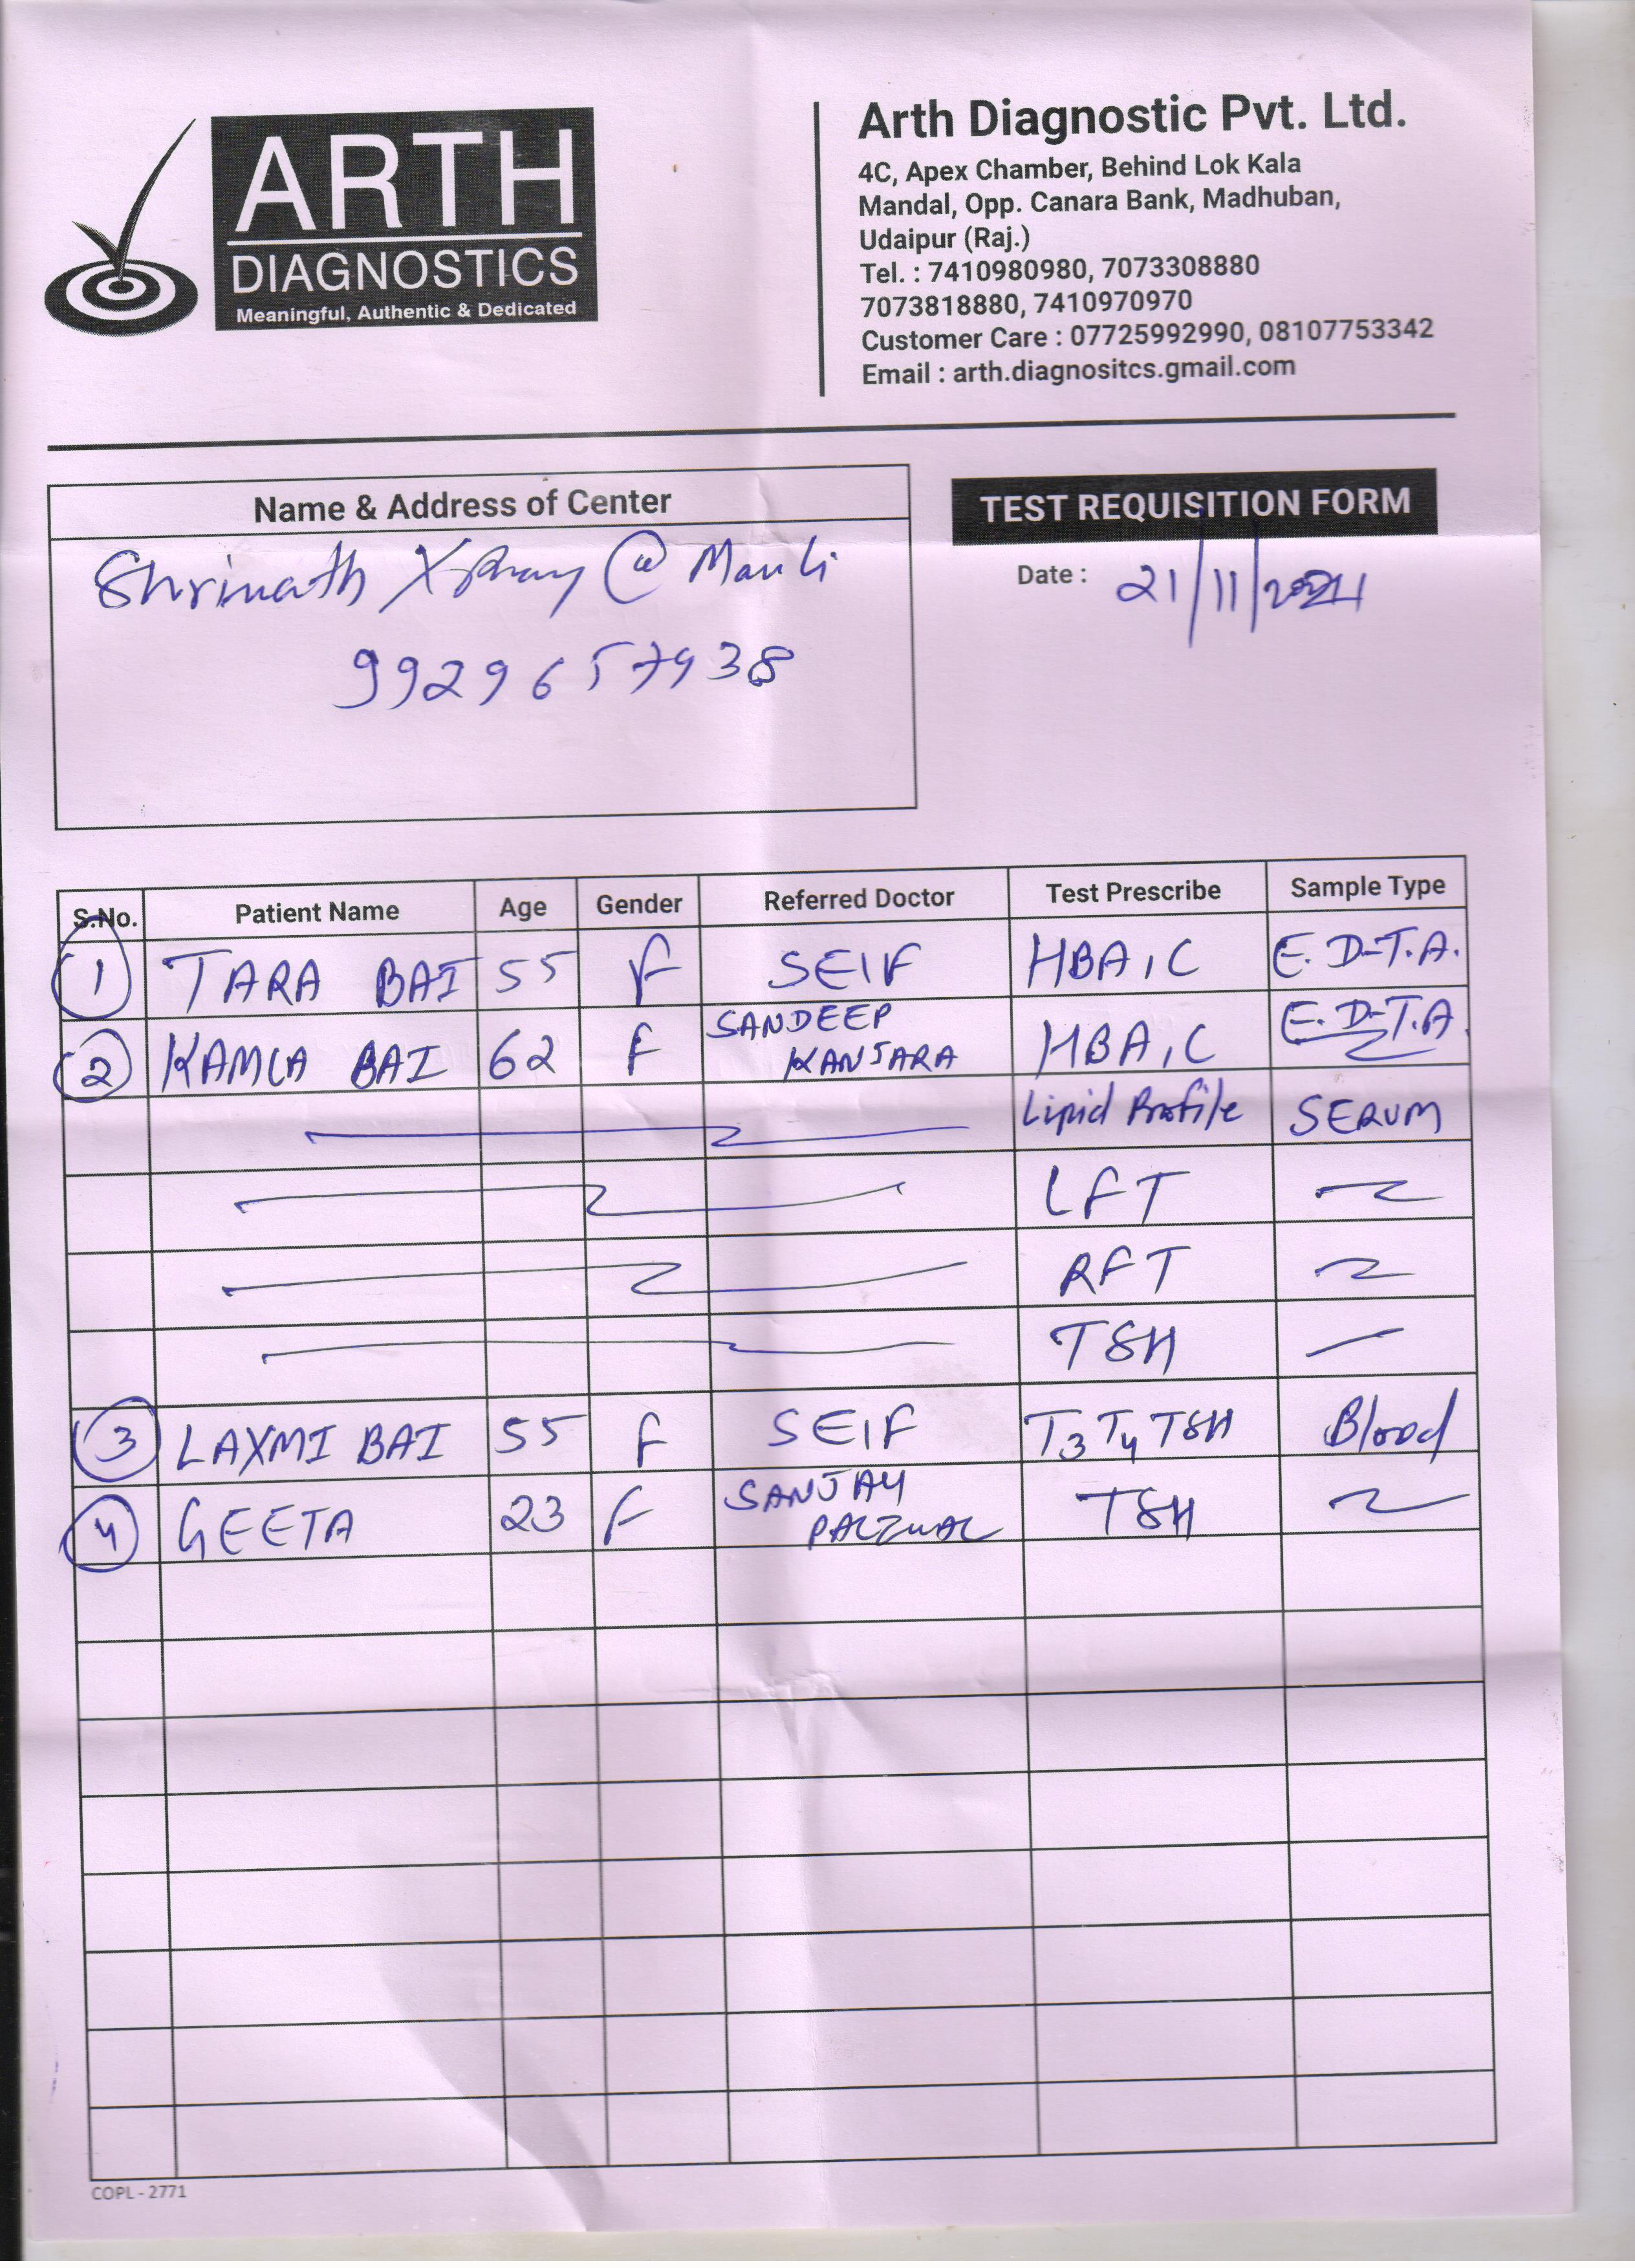 ARTH
DIAGNOSTICS
Meaningful, Authentic & Dedicated
Arth Diagnostic Pvt. Ltd.
4C, Apex Chamber, Behind Lok Kala
Mandal, Opp. Canara Bank, Madhuban,
Udaipur (Raj.)
Tel. : 7410980980, 7073308880
7073818880, 7410970970
Customer Care : 07725992990, 08107753342
Email : arth.diagnositcs.gmail.com
Name & Address of Center
Shrinath Xray @ Mavli
9929657938
TEST REQUISITION FORM
Date : 21/11/2024
S.No. Patient Name Age Gender Referred Doctor Test Prescribe Sample Type
1 TARA BAI 55 F SElF HBA1C E.D.T.A.
2 KAMLA BAI 62 F SANDEEP KANJARA HBA1C E.D.T.A.
Lipid Profile SERUM
LFT
RFT
TSH
3 LAXMI BAI 55 F SElF T3 T4 TSH Blood
4 GEETA 23 F SANJAY TSH
COPL - 2771